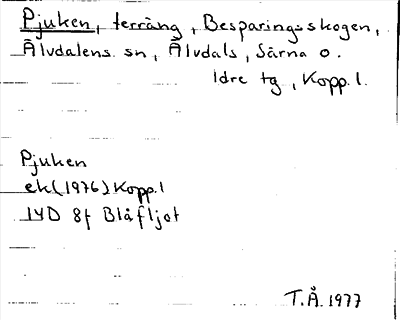 Pjuken, terräng, Besparingsskogen,
Älvdalens sn, Älvdals, Särna o.
Idre tg, Kopp. l.
Pjuken
ek(1976)Kopp.l
14D 8f Blåfljot
T.Å. 1977